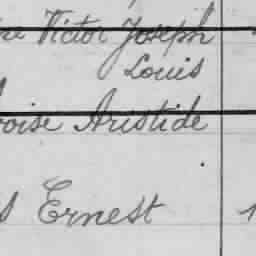 Victor Joseph
Louis
oise Aristide
Ernest